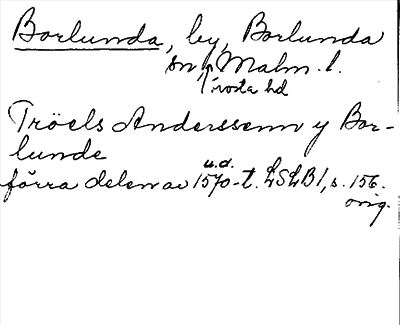 Borlunda, by, Borlunda
sn, Malm. l.
Frosta hd
Tröels Anderssenn y Bor-
lunde
förra delen av 1570-t. LSLB1, s. 156.
u.d.
orig.